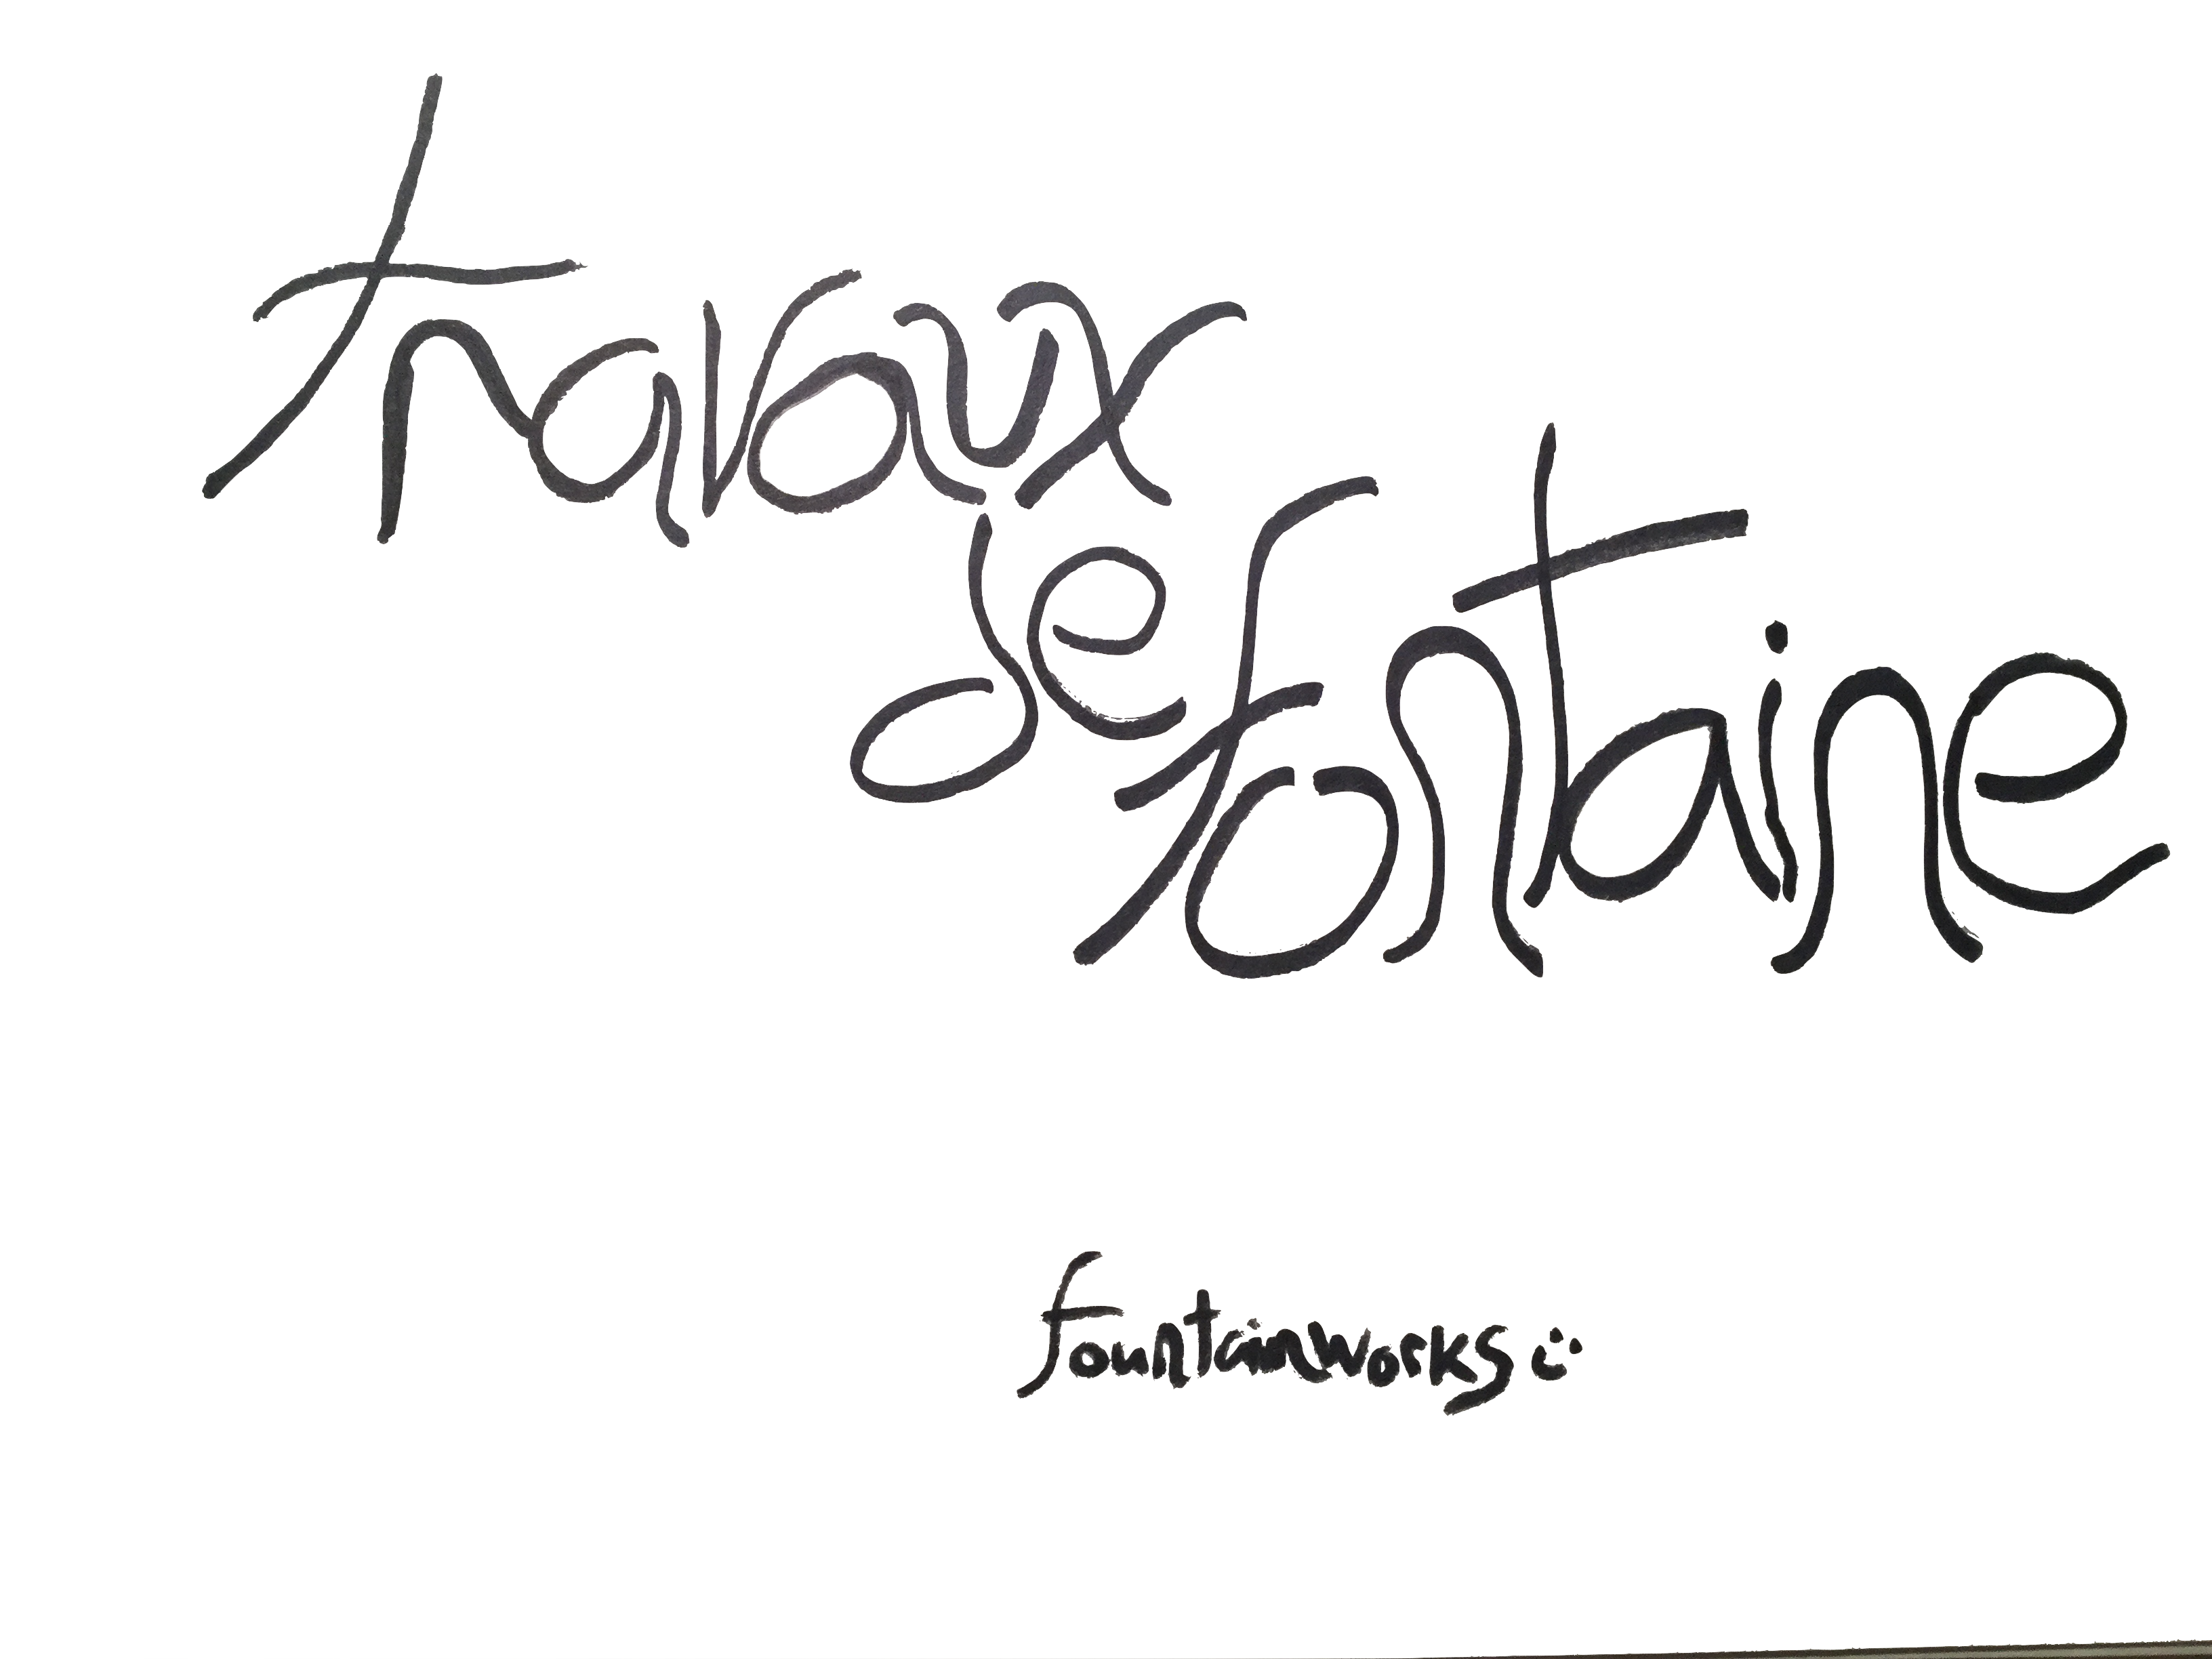 travaux
de
fontaine
fountainworks :)